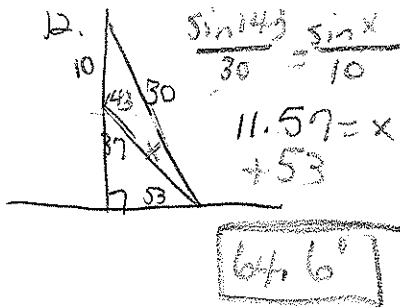 12.
10
143
30
37
x
53
sin 143 / 30 = sin x / 10
11.57 = x
+ 53
64.6°